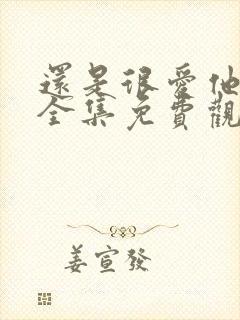 還是很愛他
全集免費觀
姜宣發